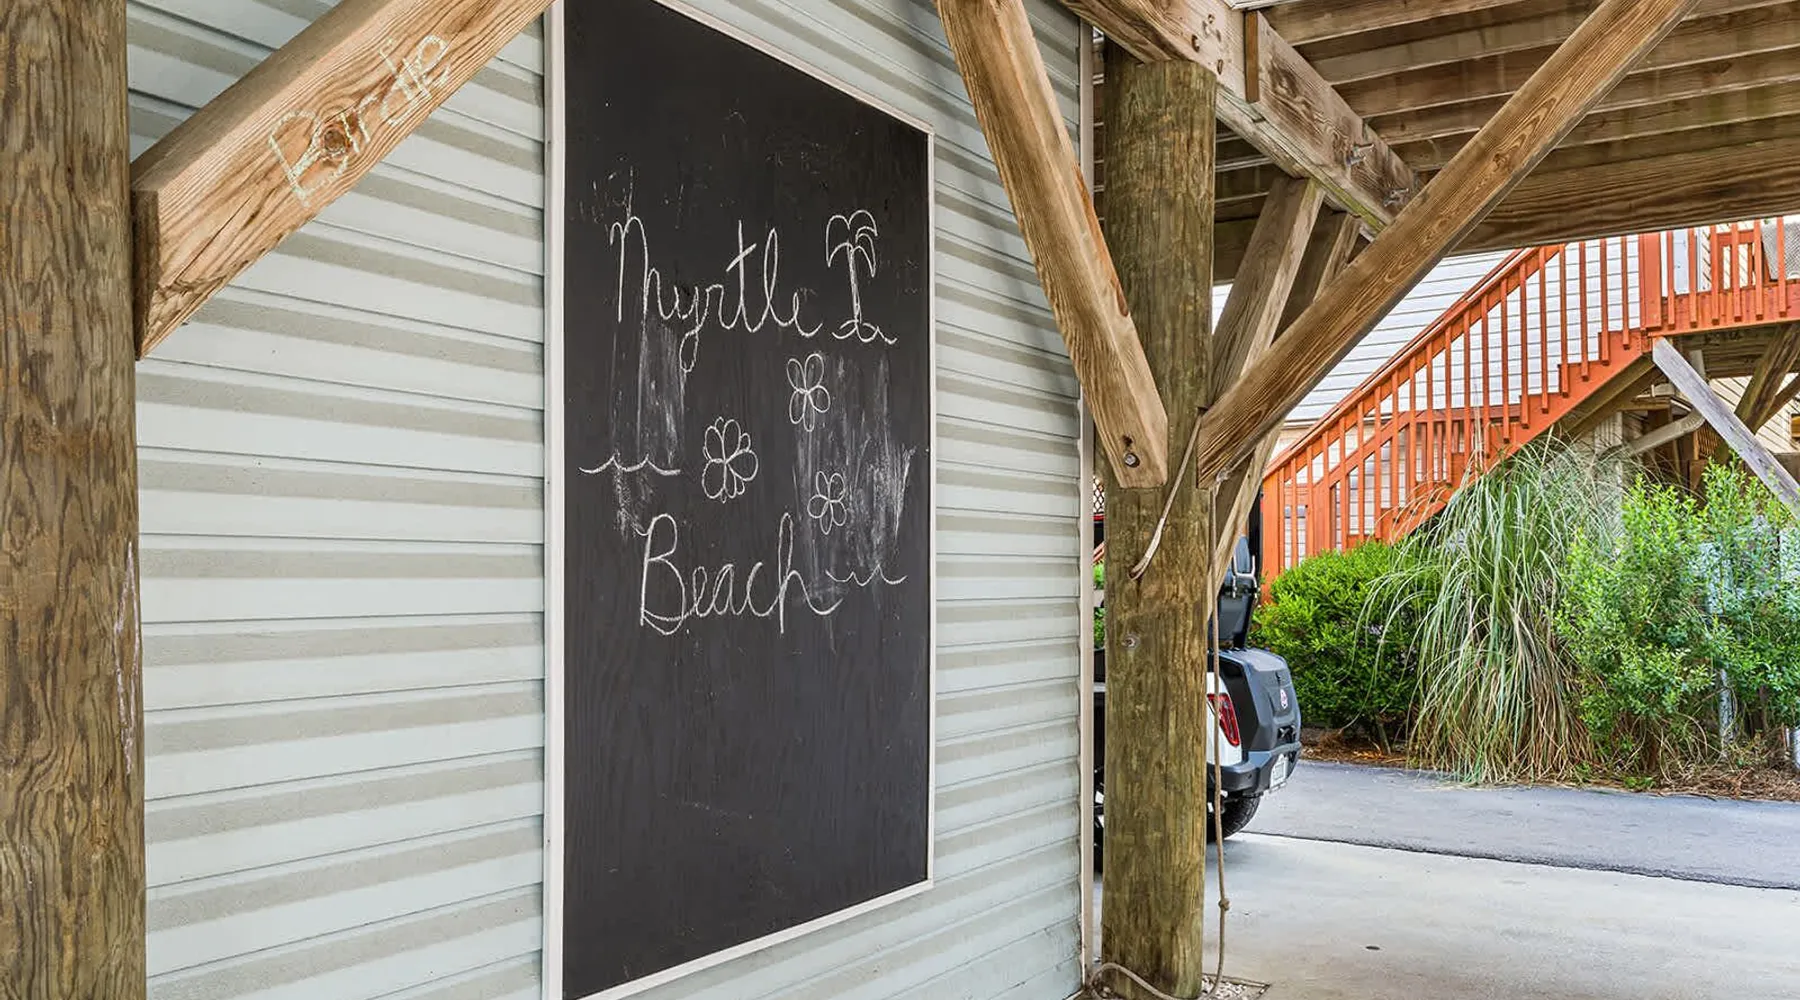 Birdie
Myrtle
Beach